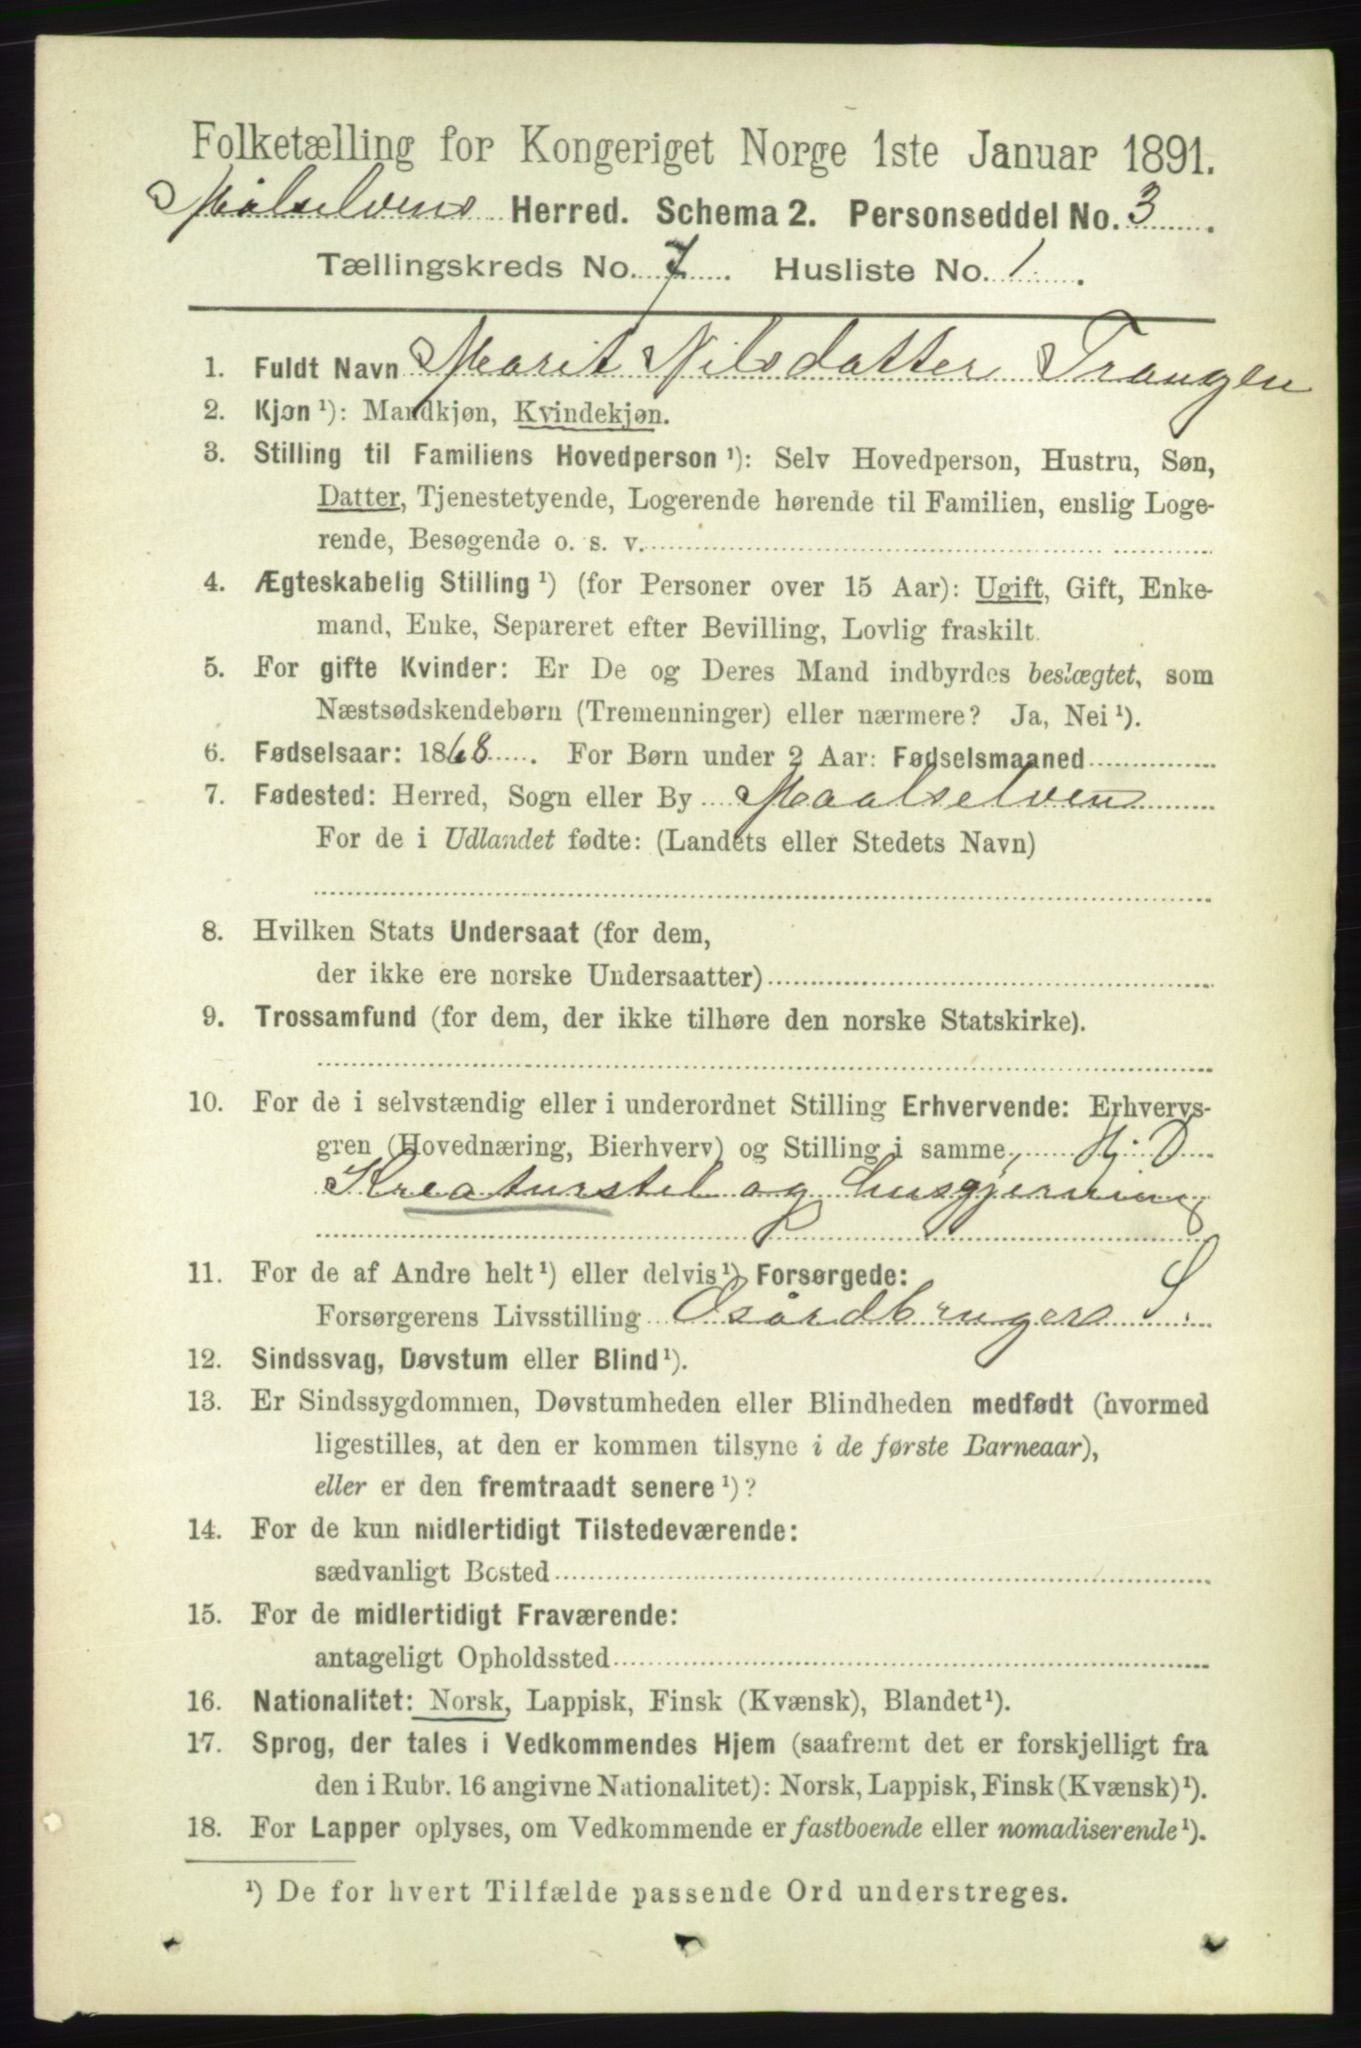 Folketælling for Kongeriget Norge 1ste Januar 1891.
Målselvens Herred. Schema 2. Personseddel No. 3.
Tællingskreds No. 7. Husliste No. 1.
1. Fuldt Navn Marit Nilsdatter Trangen
2. Kjøn ¹): Mandkjøn, Kvindekjøn.
3. Stilling til Familiens Hovedperson ¹): Selv Hovedperson, Hustru, Søn,
Datter, Tjenestetyende, Logerende hørende til Familien, enslig Loge-
rende, Besøgende o. s. v.
4. Ægteskabelig Stilling ¹) (for Personer over 15 Aar): Ugift, Gift, Enke-
mand, Enke, Separeret efter Bevilling, Lovlig fraskilt.
5. For gifte Kvinder: Er De og Deres Mand indbyrdes beslægtet, som
Næstsødskendebørn (Tremenninger) eller nærmere? Ja, Nei ¹).
6. Fødselsaar: 1868. For Børn under 2 Aar: Fødselsmaaned
7. Fødested: Herred, Sogn eller By Maalselven
For de i Udlandet fødte: (Landets eller Stedets Navn)
8. Hvilken Stats Undersaat (for dem,
der ikke ere norske Undersaatter)
9. Trossamfund (for dem, der ikke tilhøre den norske Statskirke).
10. For de i selvstændig eller i underordnet Stilling Erhvervende: Erhvervs-
gren (Hovednæring, Bierhverv) og Stilling i samme, Hj. D
Kreaturstel og husgjerning
11. For de af Andre helt ¹) eller delvis ¹) Forsørgede:
Forsørgerens Livsstilling Gårdbrugers S.
12. Sindssvag, Døvstum eller Blind ¹).
13. Er Sindssygdommen, Døvstumheden eller Blindheden medfødt (hvormed
ligestilles, at den er kommen tilsyne i de første Barneaar),
eller er den fremtraadt senere ¹)?
14. For de kun midlertidigt Tilstedeværende:
sædvanligt Bosted
15. For de midlertidigt Fraværende:
antageligt Opholdssted
16. Nationalitet: Norsk, Lappisk, Finsk (Kvænsk), Blandet ¹).
17. Sprog, der tales i Vedkommendes Hjem (saafremt det er forskjelligt fra
den i Rubr. 16 angivne Nationalitet): Norsk, Lappisk, Finsk (Kvænsk) ¹).
18. For Lapper oplyses, om Vedkommende er fastboende eller nomadiserende ¹).
¹) De for hvert Tilfælde passende Ord understreges.